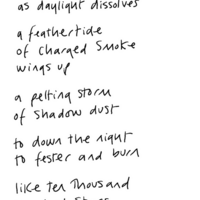 as daylight dissolves
a feathertide
of charged smoke
wings up
a pelting storm
of shadow dust
to down the night
to fester and burn
like ten thousand